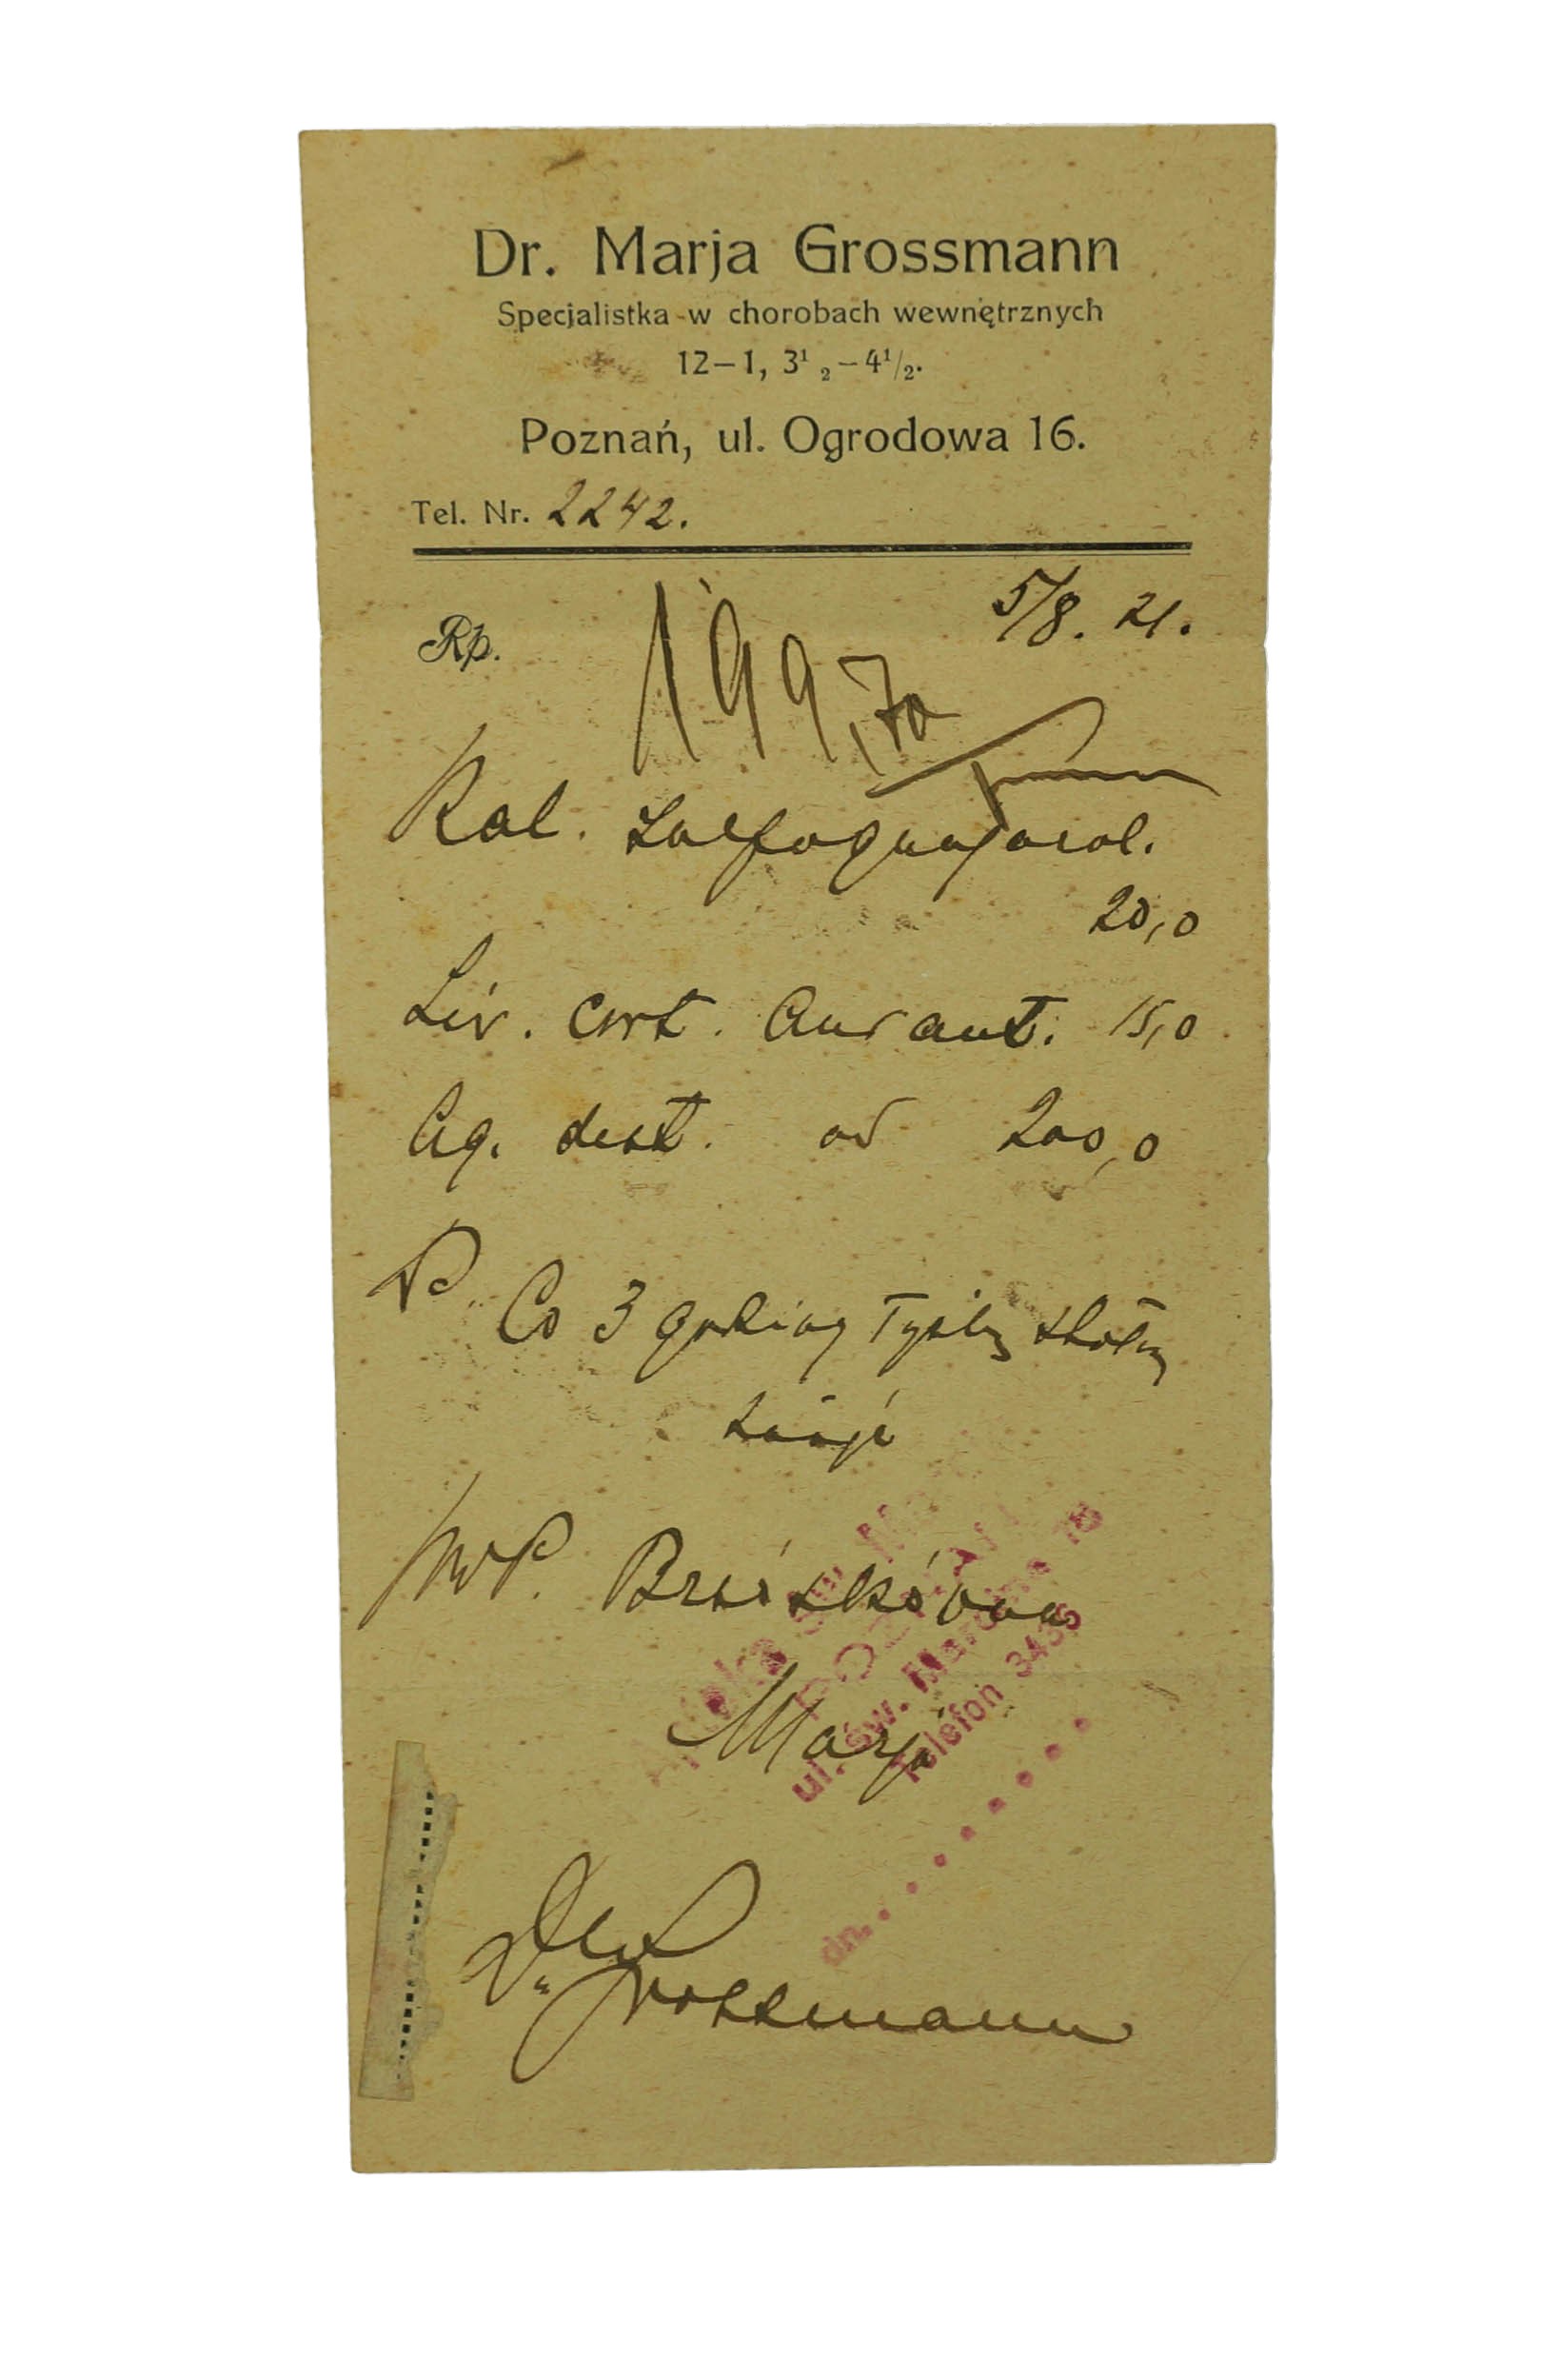 Dr. Marja Grossmann
Specjalistka w chorobach wewnętrznych
12–1, 3¹ ₂–4¹/₂.
Poznań, ul. Ogrodowa 16.
Tel. Nr. 2242.
5/8. 21.
Rp.
199,70
Kal. sulfoguajacol.
20,0
Sir. cort. Aurant. 15,0
Aq. dest. ad 200,0
Co 3 godziny łyżkę stołową
zażyć
WP.
Marja
Apteka św.
POZNAŃ
ul. św. Marcina 18
Telefon 3435
dn.
Dr Grossmann